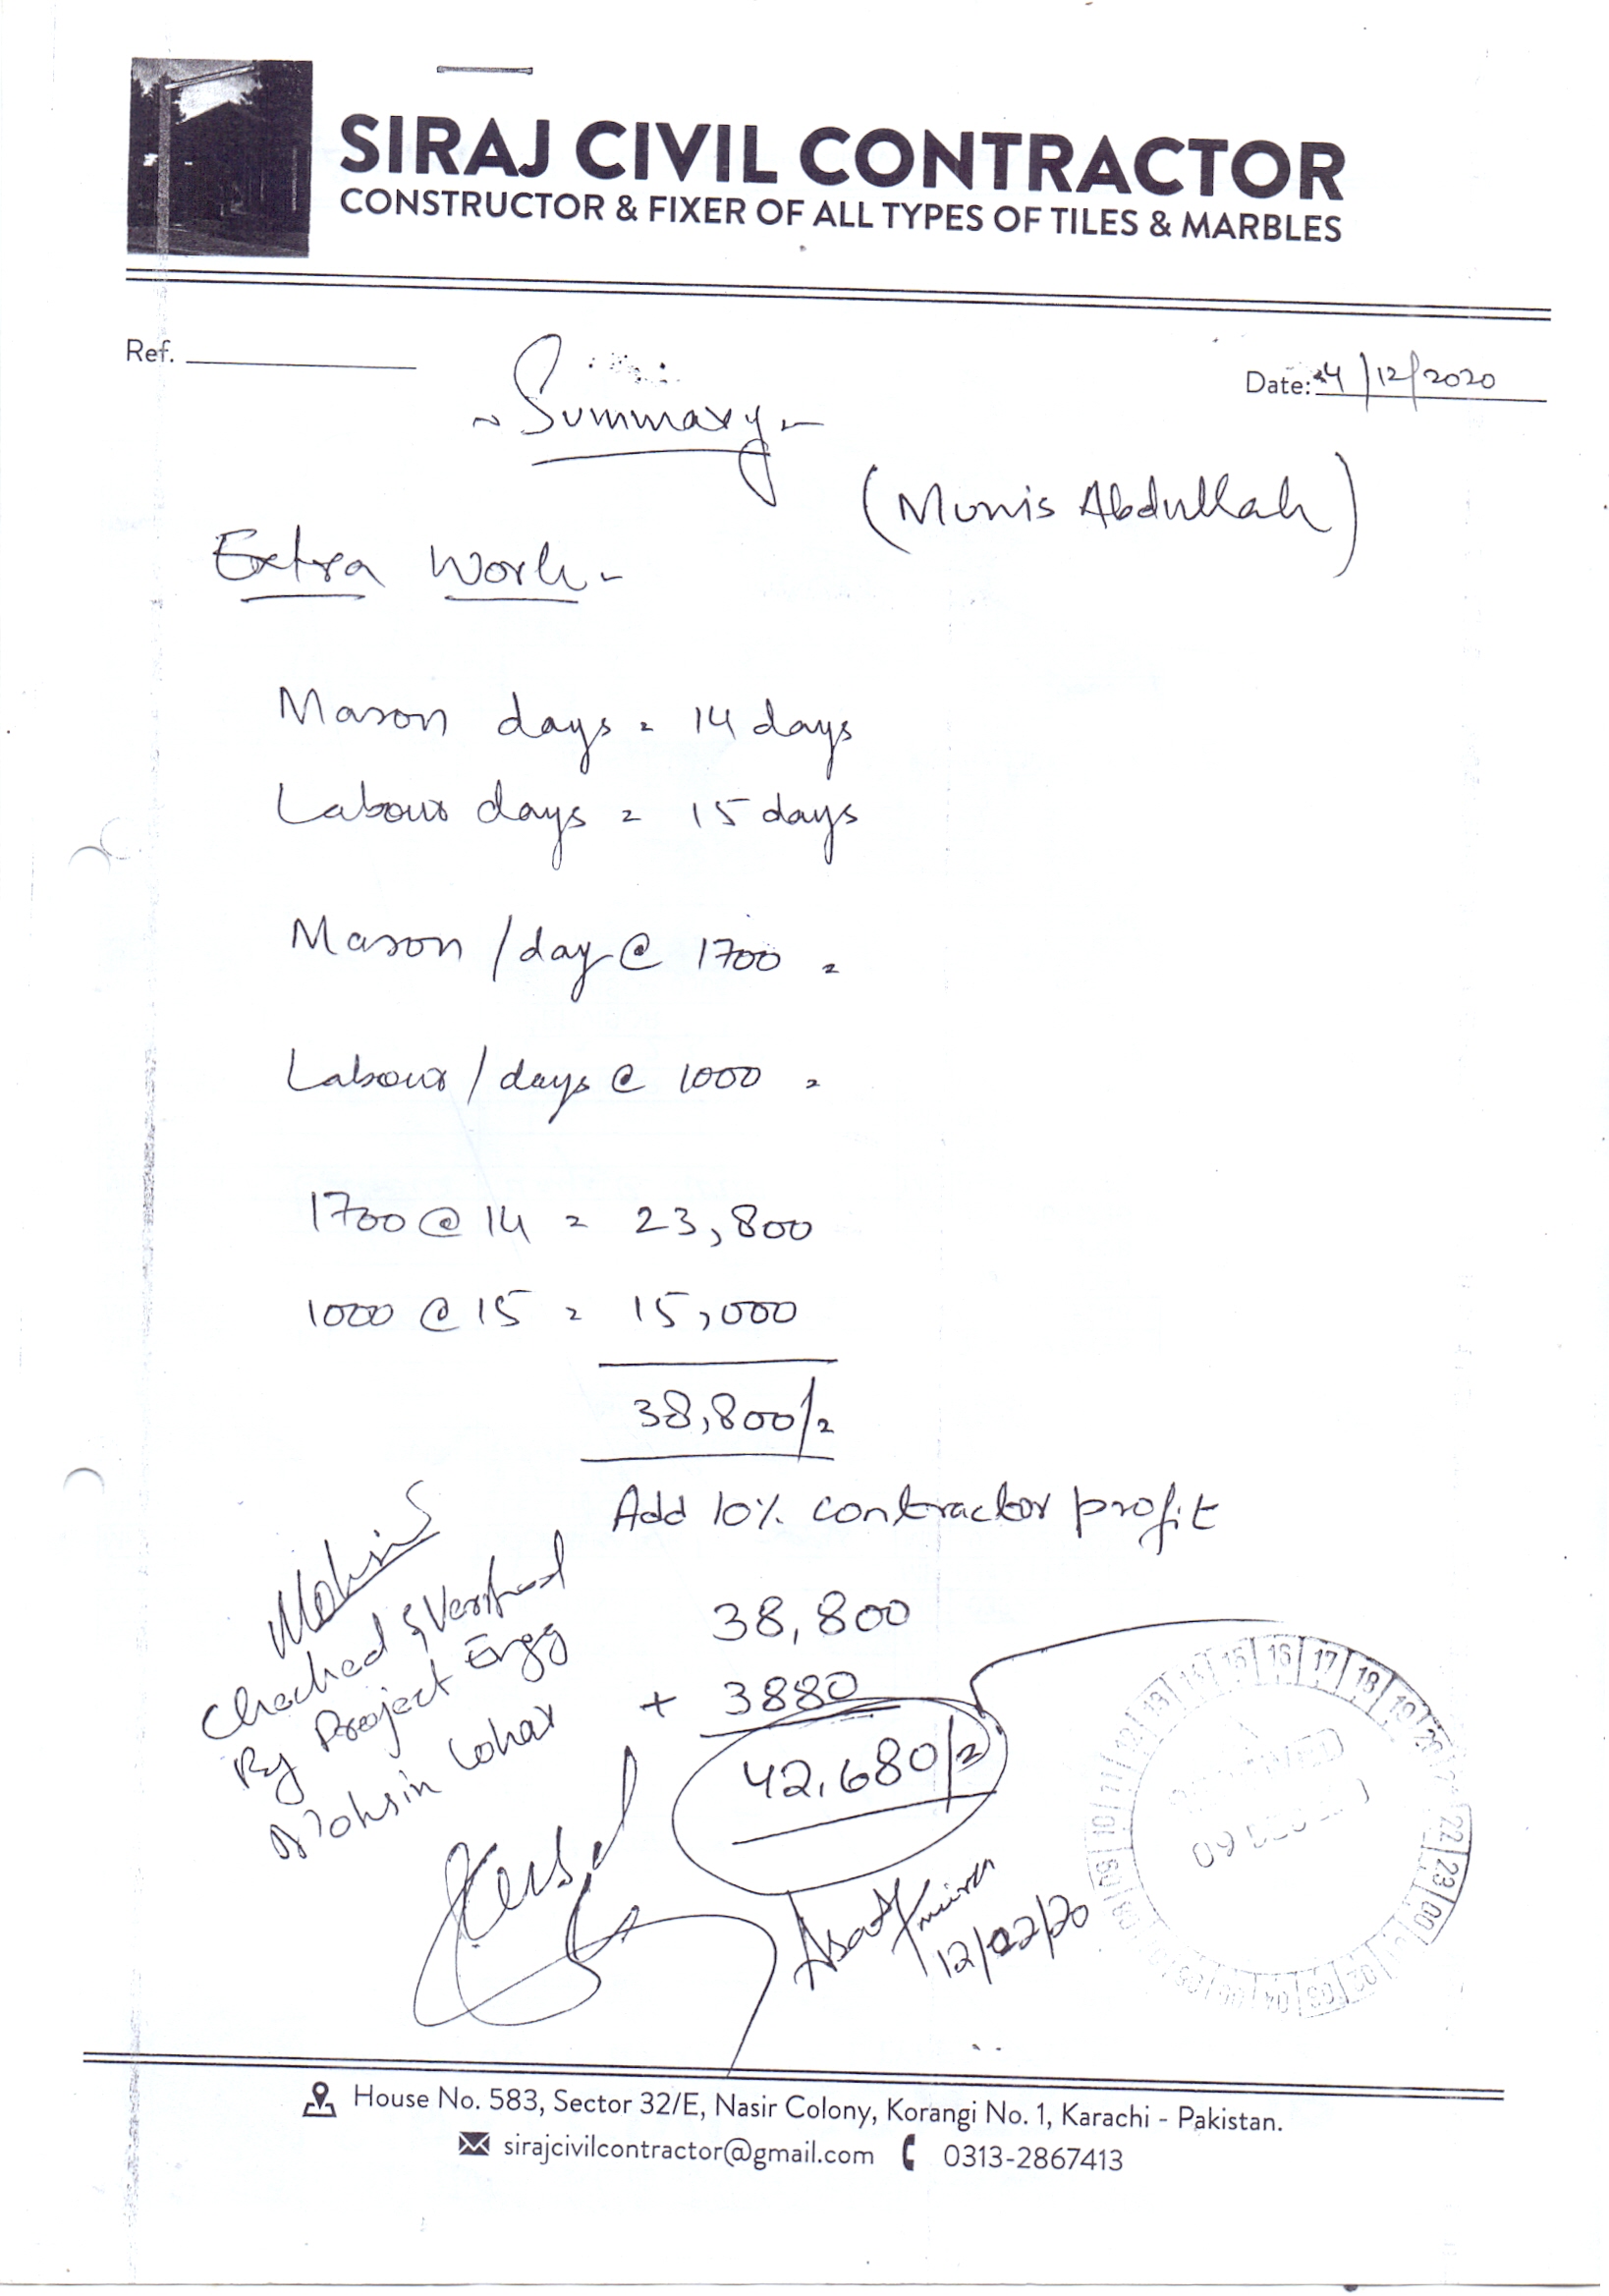 SIRAJ CIVIL CONTRACTOR
CONSTRUCTOR & FIXER OF ALL TYPES OF TILES & MARBLES
Ref.
Date: 4/12/2020
~ Summary ~
(Munis Abdullah)
Extra Work -
Mason days = 14 days
Labour days = 15 days
Mason /day @ 1700 =
Labour / days @ 1000 =
1700 @ 14 = 23,800
1000 @ 15 = 15,000
38,800/=
Add 10% contractor profit
38,800
+ 3880
42,680/=
Mohsin
Checked & Verified
By Project Engg
Mohsin Lohar
12/02/20
15 16 17 18 19 20
22 23 00
09 DEC
House No. 583, Sector 32/E, Nasir Colony, Korangi No. 1, Karachi - Pakistan.
sirajcivilcontractor@gmail.com 0313-2867413